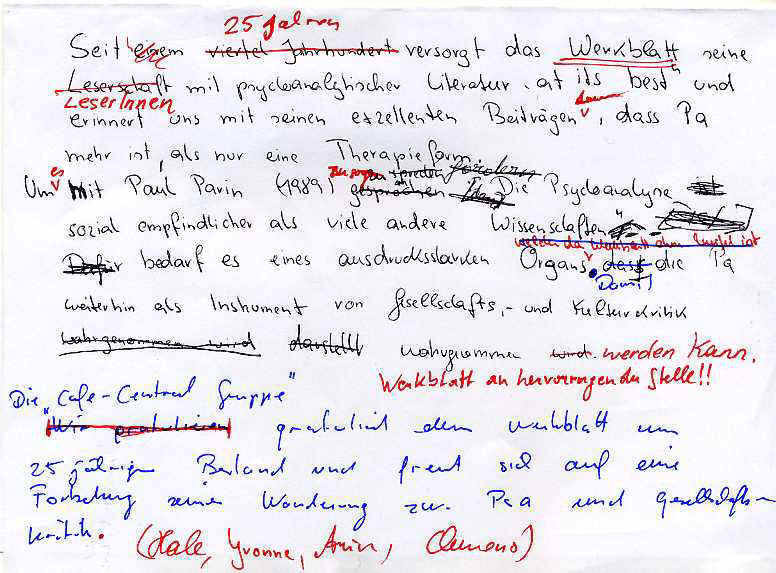 25 Jahren
Seit einem viertel Jahrhundert versorgt das Werkblatt seine
Leserschaft mit psychoanalytischer Literatur at its best" und
LeserInnen
erinnert uns mit seinen exzellenten Beiträgen, dass Pa
mehr ist, als nur eine Therapieform.
Um es mit Paul Parin (1989) zu sagen gesprochen Die Psychoanalyse ist
sozial empfindlicher als viele andere Wissenschaften"
Dafür bedarf es eines ausdrucksstarken Organs. dass die Pa
Damit
weiterhin als Instrument von Gesellschafts,- und Kulturkritik
wahrgenommen wird darstellt wahrgenommen wird. werden kann.
Werkblatt an hervorragender Stelle!!
Die "Cafe-Central Gruppe"
Wir gratulieren gratuliert dem Werkblatt zum
25 jährigen Bestand und freut sich auf eine
Forsetzung seiner Wanderung zw. Psa und Gesellschafts-
kritik. (Hale, Yvonne, Armin, Clemens)